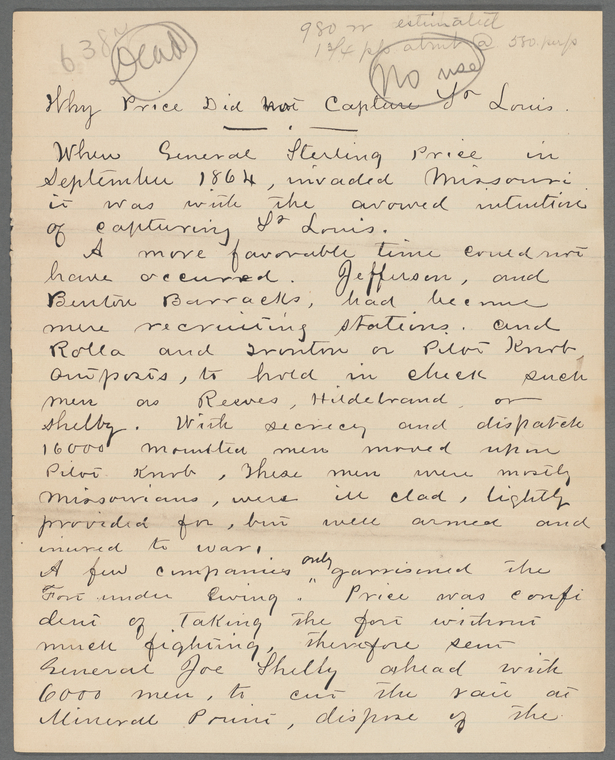 638 w
Dead
980 w estimated
1 3/4 pp about @ 580 per p
No use
Why Price Did Not Capture St Louis.
When General Sterling Price in
September 1864, invaded Missouri
it was with the avowed intention
of capturing St Louis.
A more favorable time could not
have occured. Jefferson, and
Benton Barracks, had become
mere recruiting stations. and
Rolla and Ironton or Pilot Knob
outposts, to hold in check such
men as Reeves, Hildebrand or
Shelby. With secrecy and dispatch
16000 mounted men moved upon
Pilot Knob, These men were mostly
Missourians, were ill clad, lightly
provided for, but well armed and
inured to war.
A few companies only garrisoned the
Fort under Ewing. Price was confi
dent of taking the fort without
much fighting, therefore sent
General Joe Shelby ahead with
6000 men, to cut the rail at
Mineral Point, dispose of the